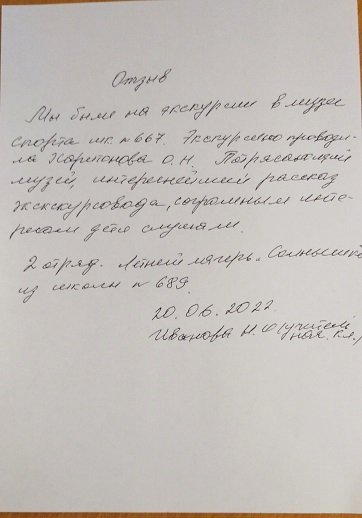 Отзыв
Мы были на экскурсии в музее
спорта шк. №667. Экскурсию проводи-
ла Харитонова О.Н. Потрясающий
музей, интереснейший рассказ
экскурсовода, с огромным инте-
ресом дети слушали.
2 отряд. Летний лагерь "Солнышко"
из школы № 689.
20.06.2022
Иванова Н.Ф (учитель
нач. кл.)